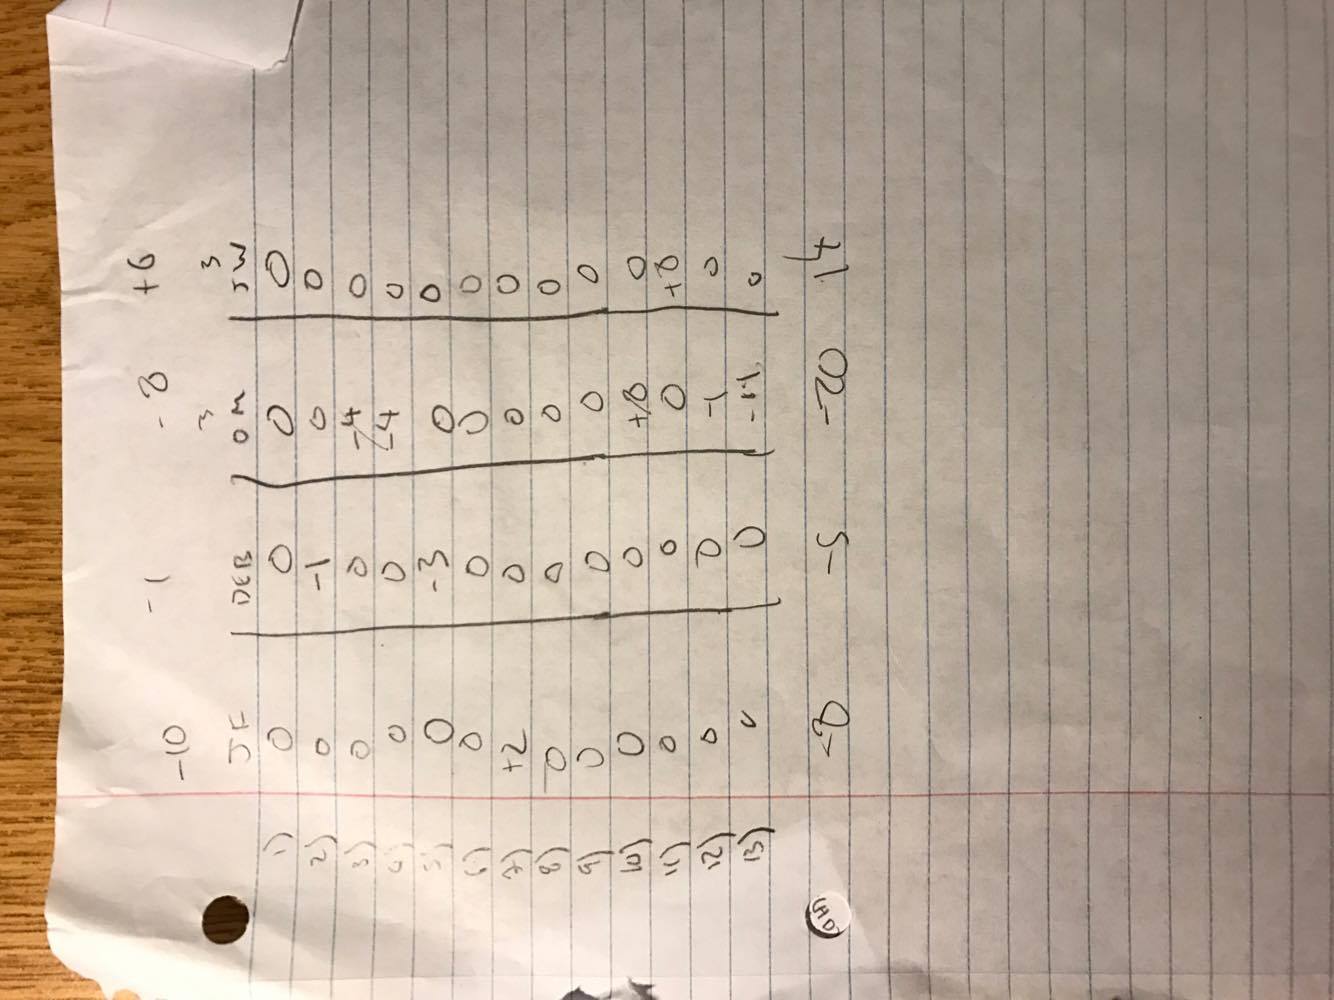 -10 -1 -8 +6
3 3
JF DEB OM JW
1) 0 0 0 0
2) 0 -1 0 0
3) 0 0 -4 0
4) 0 0 -4 0
5) 0 -3 0 0
6) 0 0 0 0
7) +2 0 0 0
8) 0 0 0 0
9) 0 0 0 0
10) 0 0 +8 0
11) 0 0 0 +8
12) 0 0 -1 0
13) 0 0 -11 0
-8 -5 -20 14